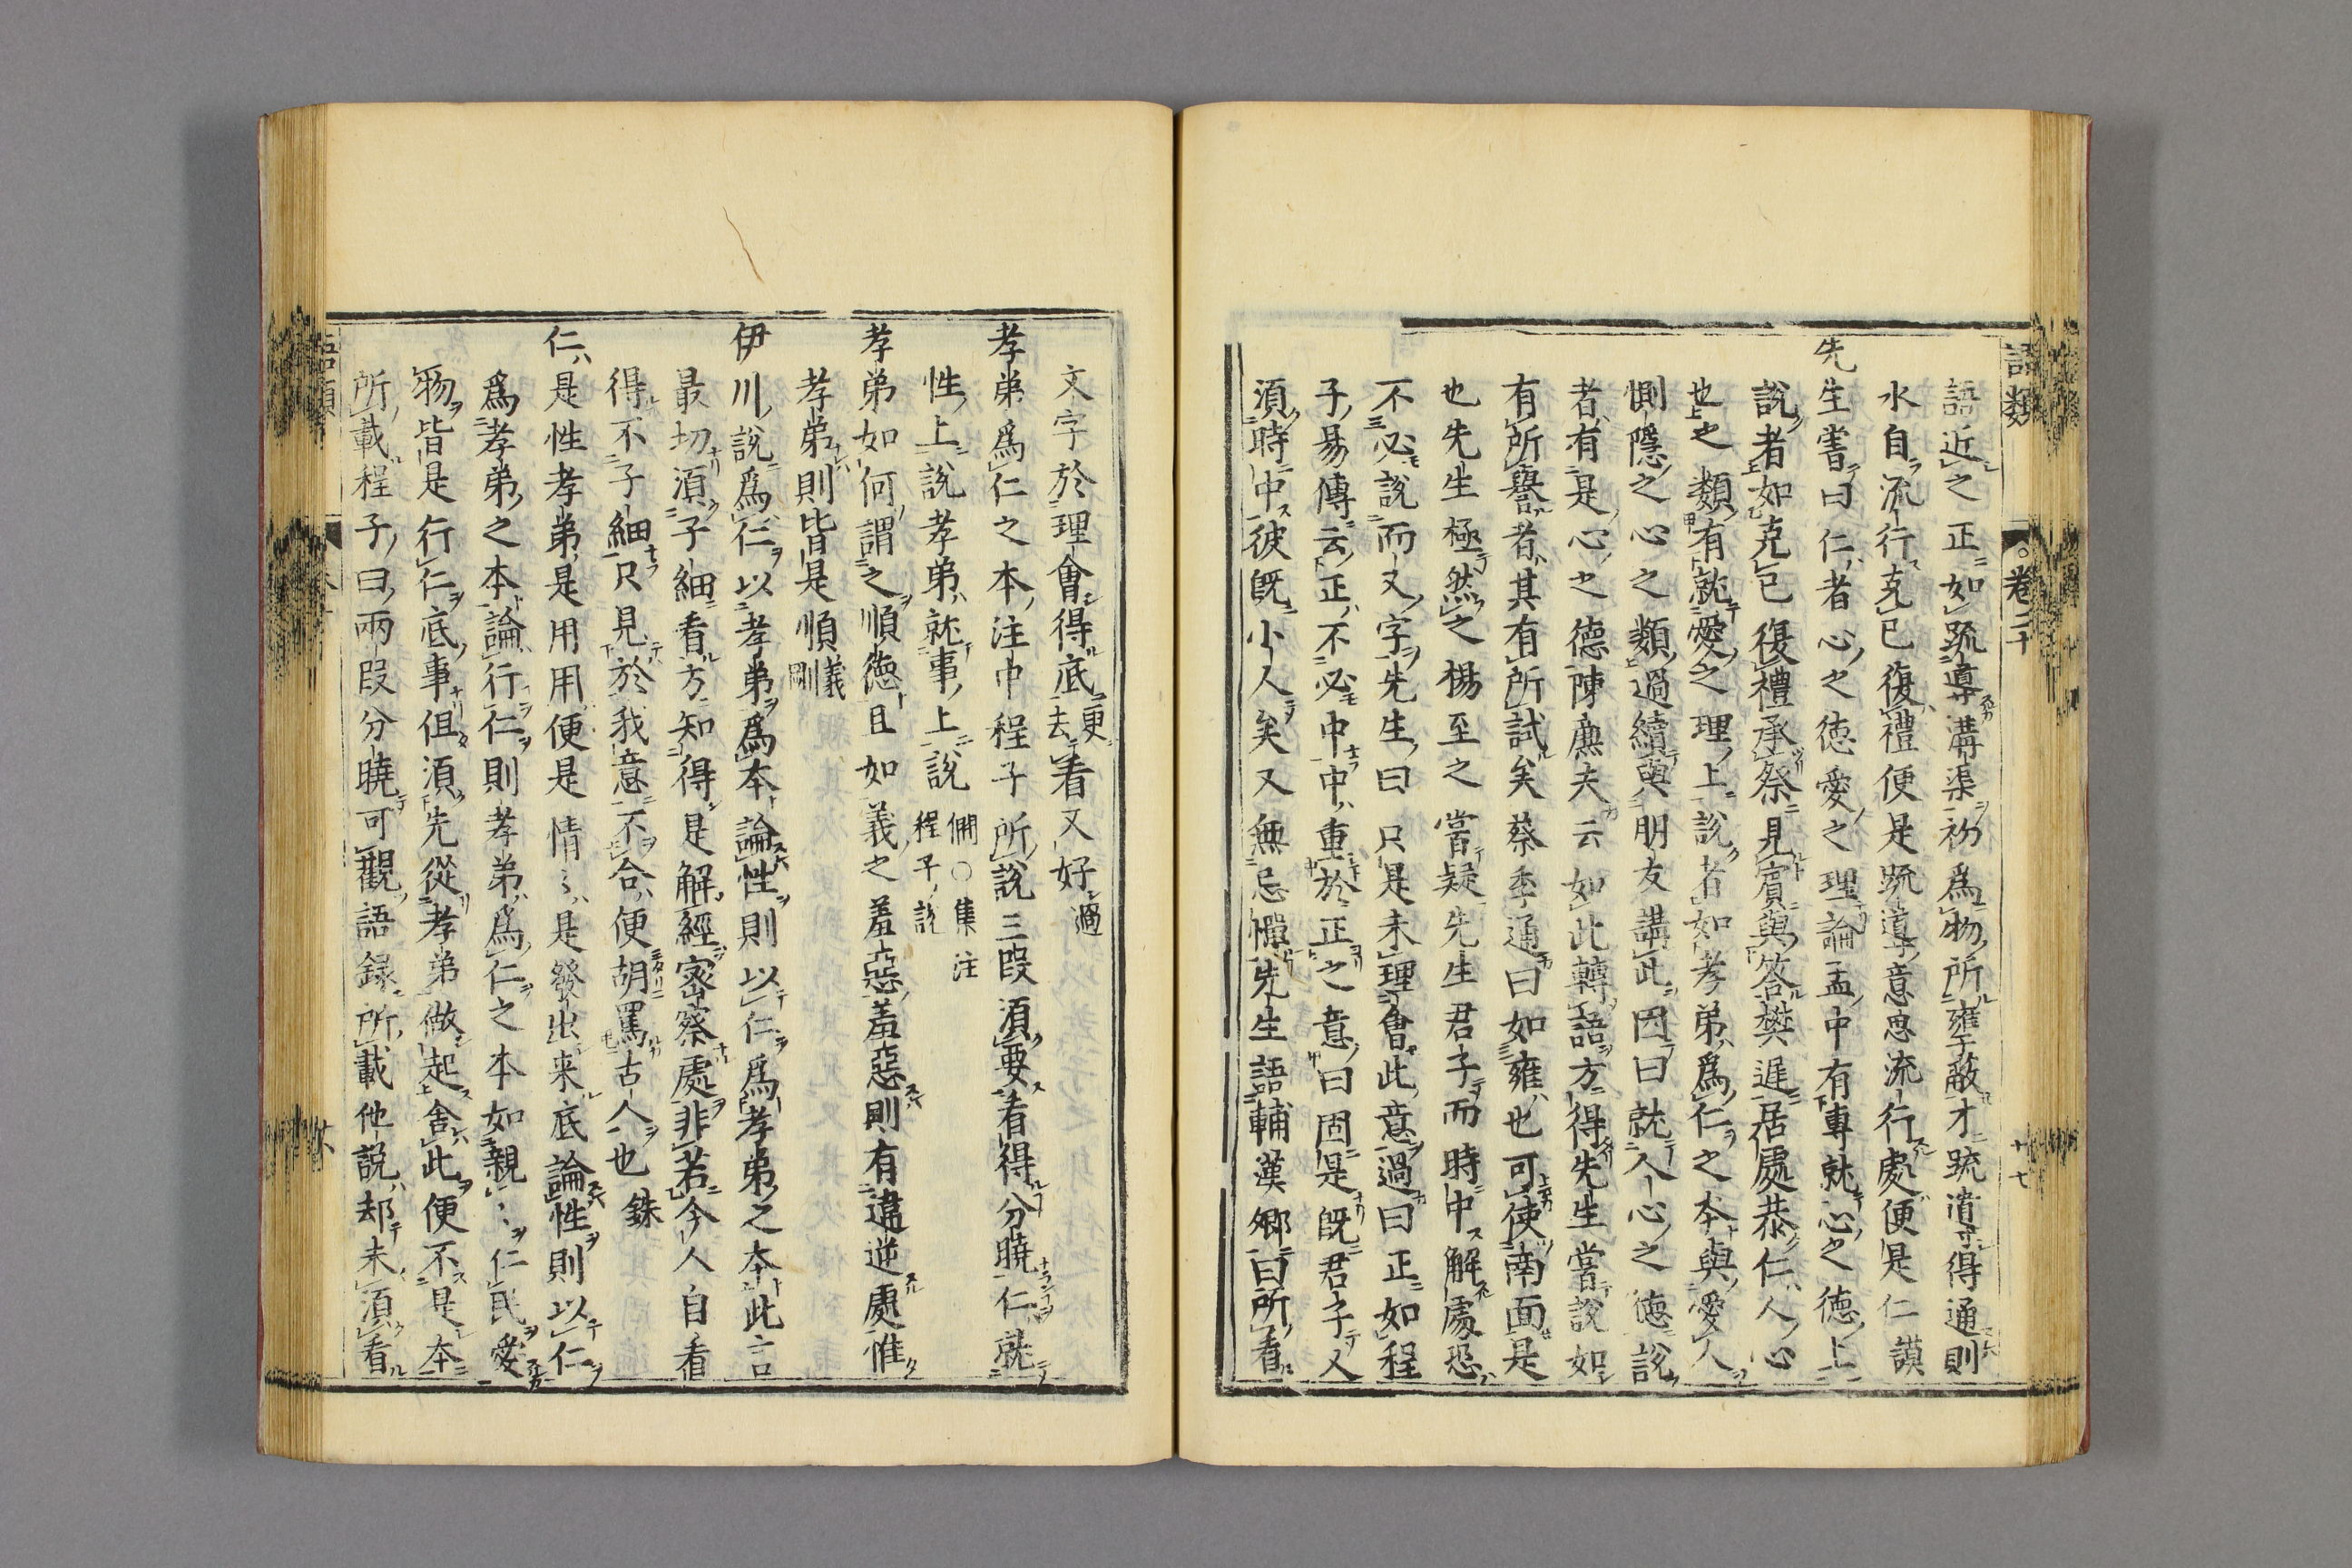 語類 卷二十 十七
語近之正如疏導溝渠初爲物所壅蔽才疏濬得通則
水自流行克己復禮便是疏導意思流行處便是仁謨
先生嘗曰仁者心之德愛之理論孟中有專就心之德上
說者如克己復禮承祭見賓與答樊遲居處恭仁人心
也之類有就愛之理上說者如孝弟爲仁之本與愛人
惻隱之心之類過續與朋友講此因曰就人心之德說
者有是心之德陳廉夫云如此轉語方得先生嘗說如
有所譽者其有所試矣蔡季通曰如雍也可使南面是
也先生極然之楊至之嘗疑先生君子而時中解處恐
不必說而又字先生曰只是未理會此意過曰正如程
子易傳云正不必中中重於正之意曰固是既君子又
須時中彼既小人矣又無忌憚先生語輔漢卿曰所看
文字於理會得底更去看又好過
孝弟爲仁之本注中程子所說三段須要看得分曉仁就
性上說孝弟就事上說
僩〇集注
程子說
孝弟如何謂之順德且如義之羞惡羞惡則有違逆處惟
孝弟則皆是順
義剛
伊川說爲仁以孝弟爲本論性則以仁爲孝弟之本此言
最切須子細看方知得是解經密察處非若今人自看
得不子細只見於我意不合便胡罵古人也銖
仁是性孝弟是用用便是情〻是發出来底論性則以仁
爲孝弟之本論行仁則孝弟爲仁之本如親〻仁民愛
物皆是行仁底事但須先從孝弟做起舍此便不是本
所載程子曰兩段分曉可觀語録所載他說却未須看
語類